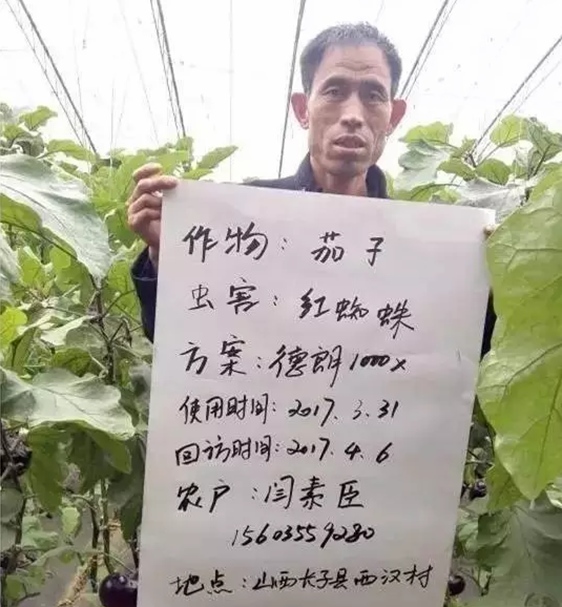 作物：茄子
虫害：红蜘蛛
方案：德朗1000x
使用时间：2017.3.31
回访时间：2017.4.6
农户：闫素臣
15603559280
地点：山西长子县西汉村